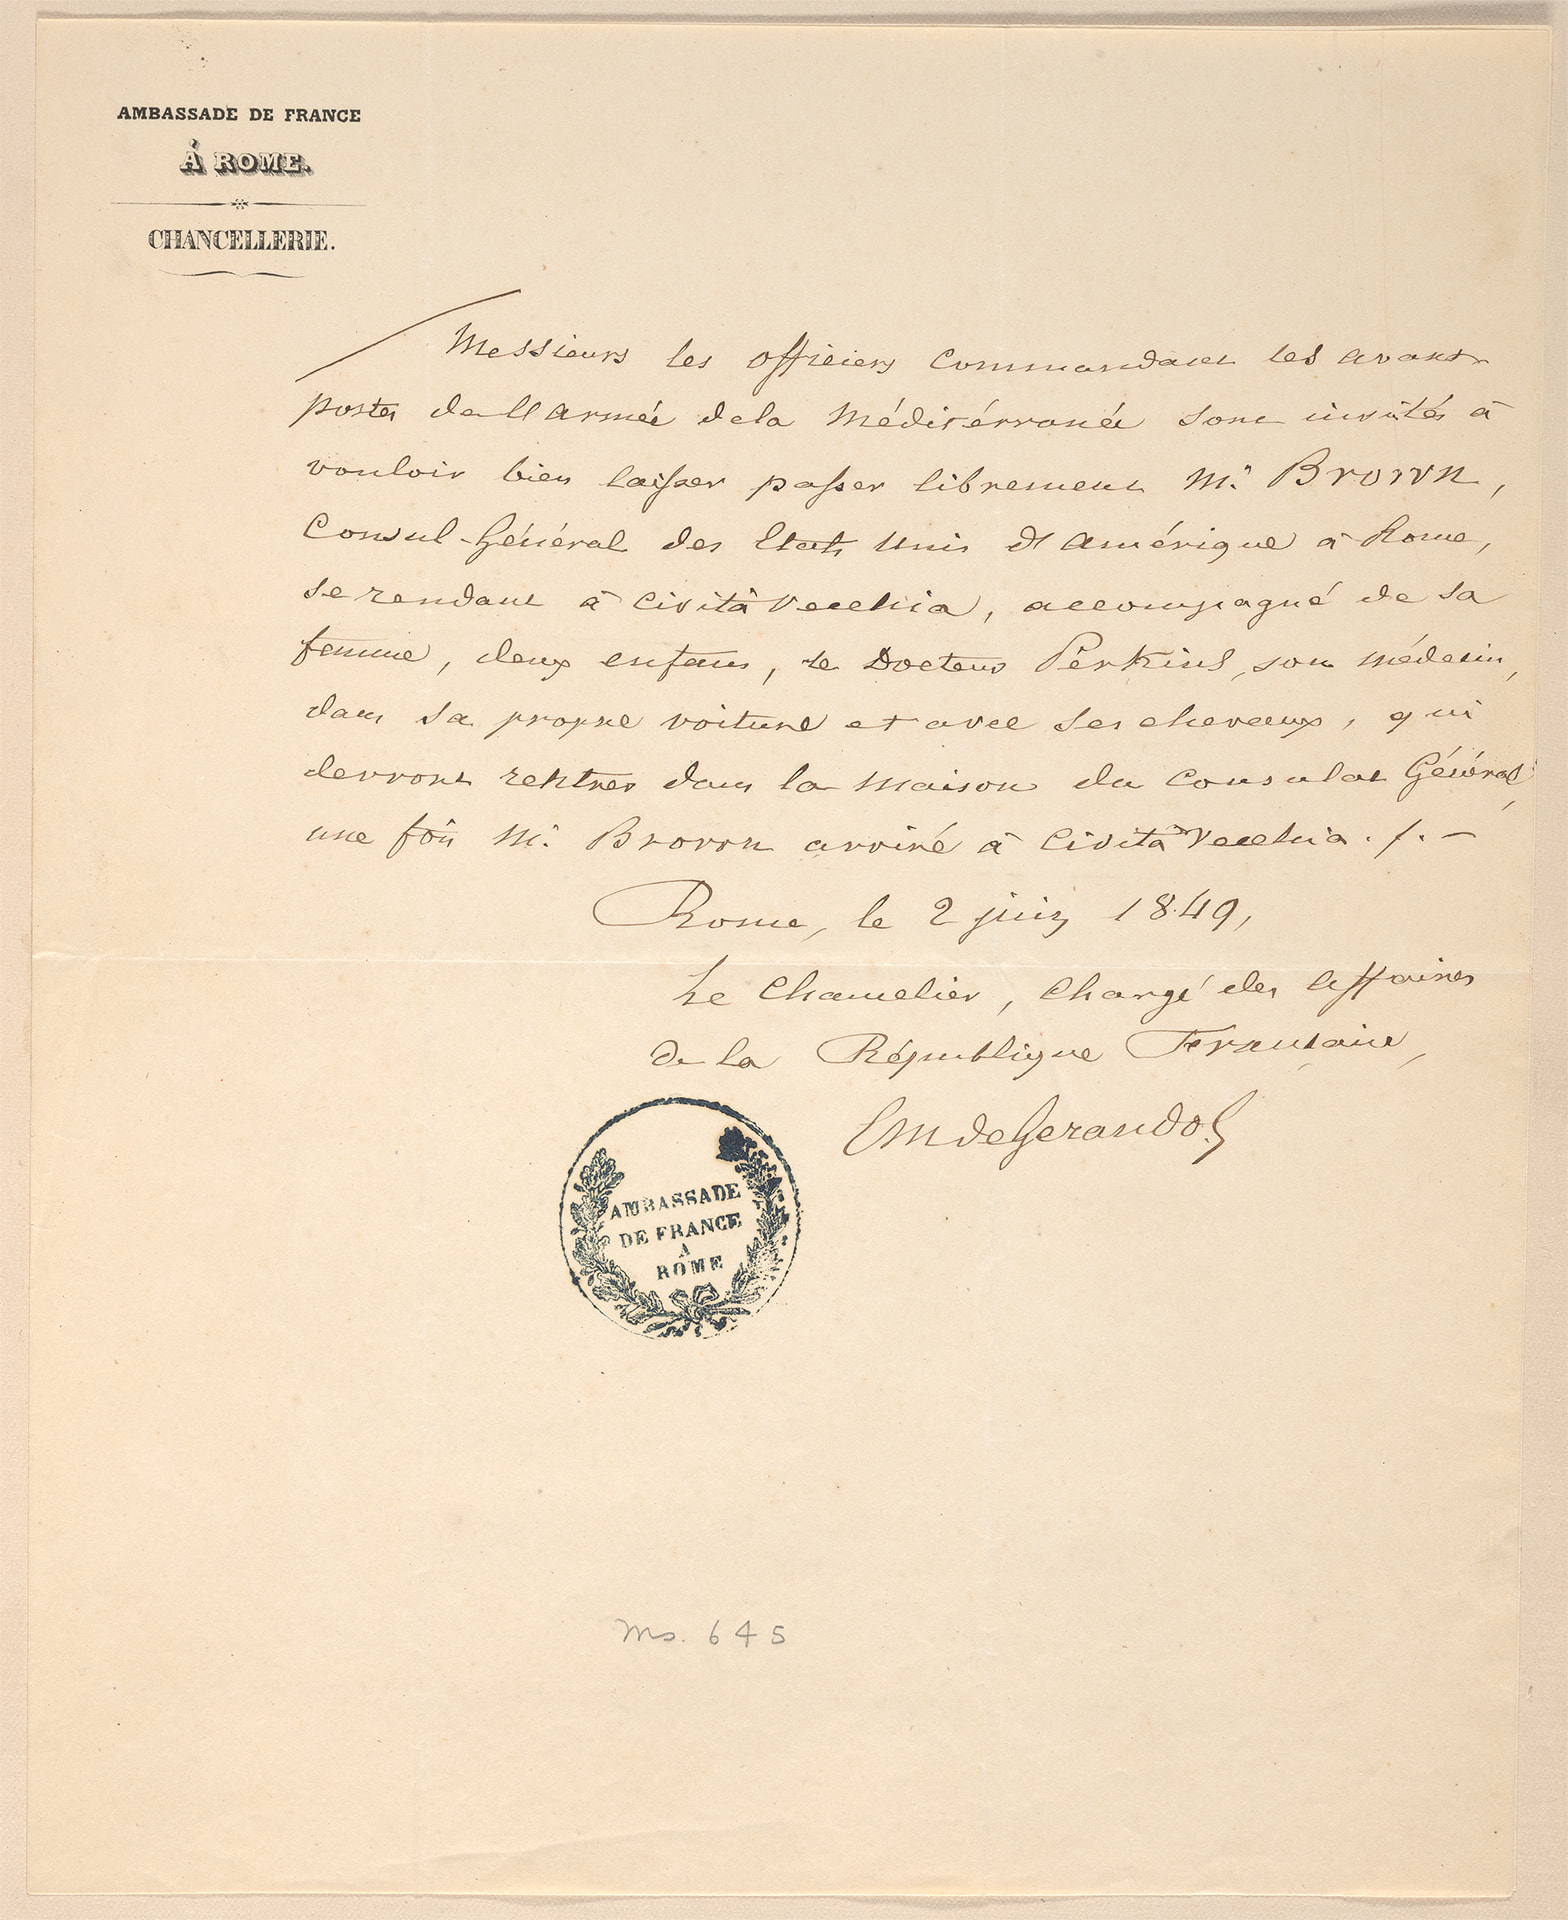 AMBASSADE DE FRANCE
À ROME.
CHANCELLERIE.
Messieurs les officiers commandant les avant-
postes de l'Armée de la Méditérranée sont invités à
vouloir bien laisser passer librement Mr. Brown,
Consul-Général des Etats Unis d'Amérique à Rome,
se rendant à Cività Vecchia, accompagné de sa
femme, deux enfans, le Docteur Perkins, son médecin,
dans sa propre voiture et avec ses chevaux, qui
devront rentrer dans la maison du Consulat Général,
une fois Mr. Brown arrivé à Cività Vecchia ./. —
Rome, le 2 juin 1849,
Le Chancelier, Chargé des affaires
de la République Française,
Em de Gerando
AMBASSADE
DE FRANCE
A
ROME
Ms. 645